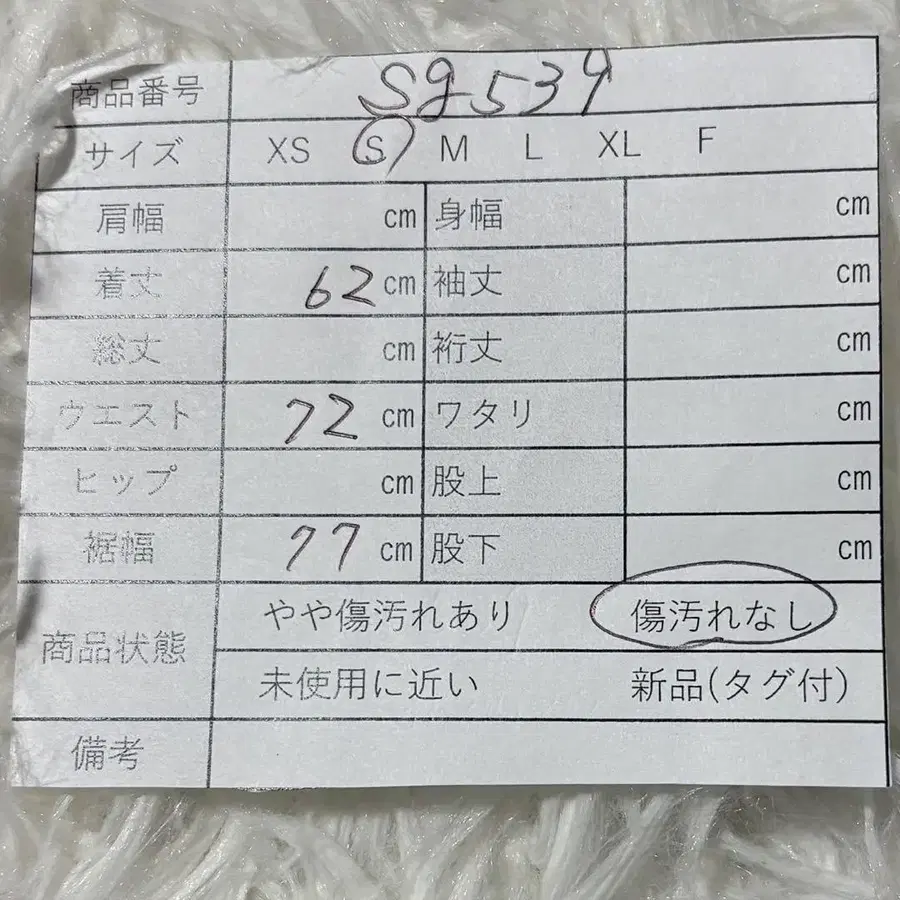 商品番号 Sg534
サイズ XS S M L XL F
肩幅 cm 身幅 cm
着丈 62 cm 袖丈 cm
総丈 cm 裄丈 cm
ウエスト 72 cm ワタリ cm
ヒップ cm 股上 cm
裾幅 77 cm 股下 cm
商品状態 やや傷汚れあり 傷汚れなし
未使用に近い 新品(タグ付)
備考